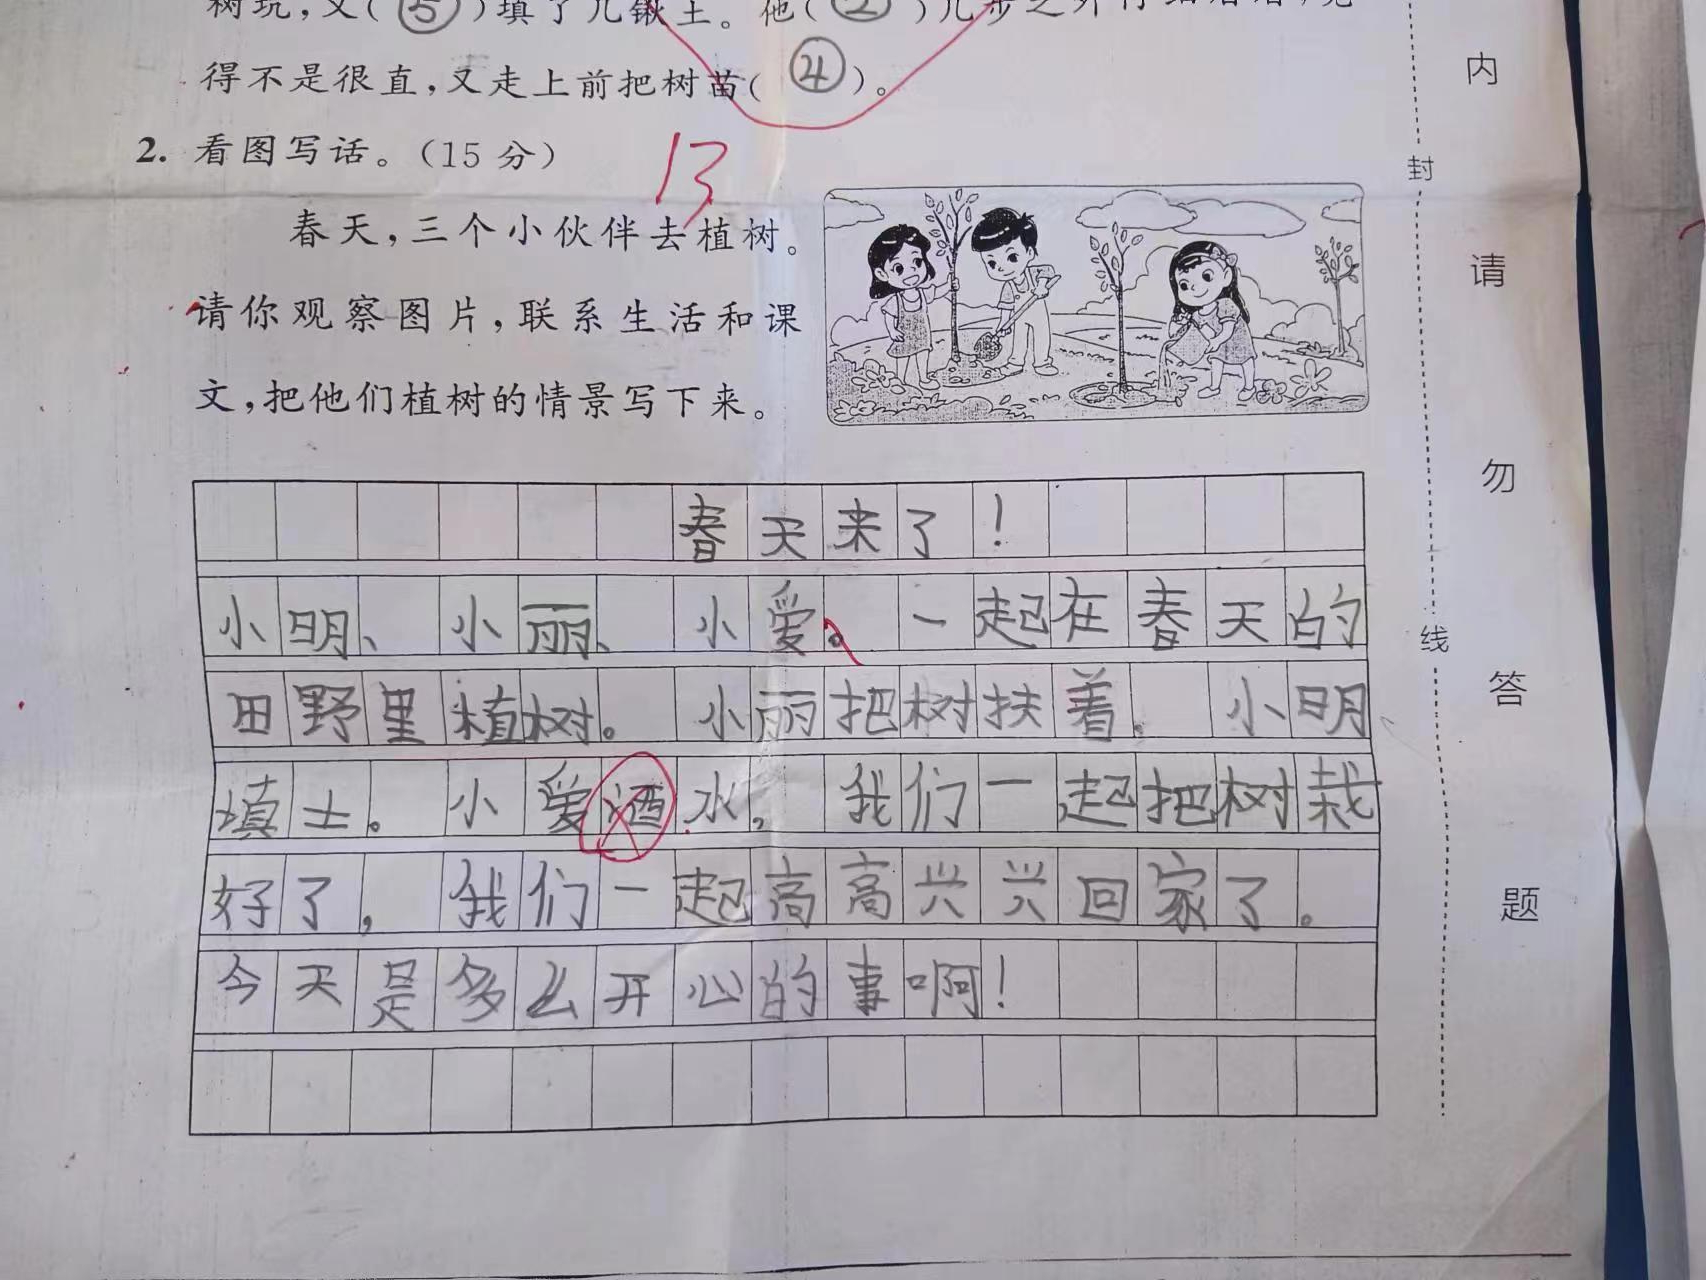 树玩，又(⑤)填了几锹土。他(②)几步之外仔细
得不是很直，又走上前把树苗(④)。
2. 看图写话。（15分）
13
春天，三个小伙伴去植树。
请你观察图片，联系生活和课
文，把他们植树的情景写下来。
春天来了！
小明、小丽、小爱。一起在春天的
田野里植树。小丽把树扶着。小明
填土。小爱洒水，我们一起把树栽
好了，我们一起高高兴兴回家了。
今天是多么开心的事啊！
内
请
勿
答
题
封
线